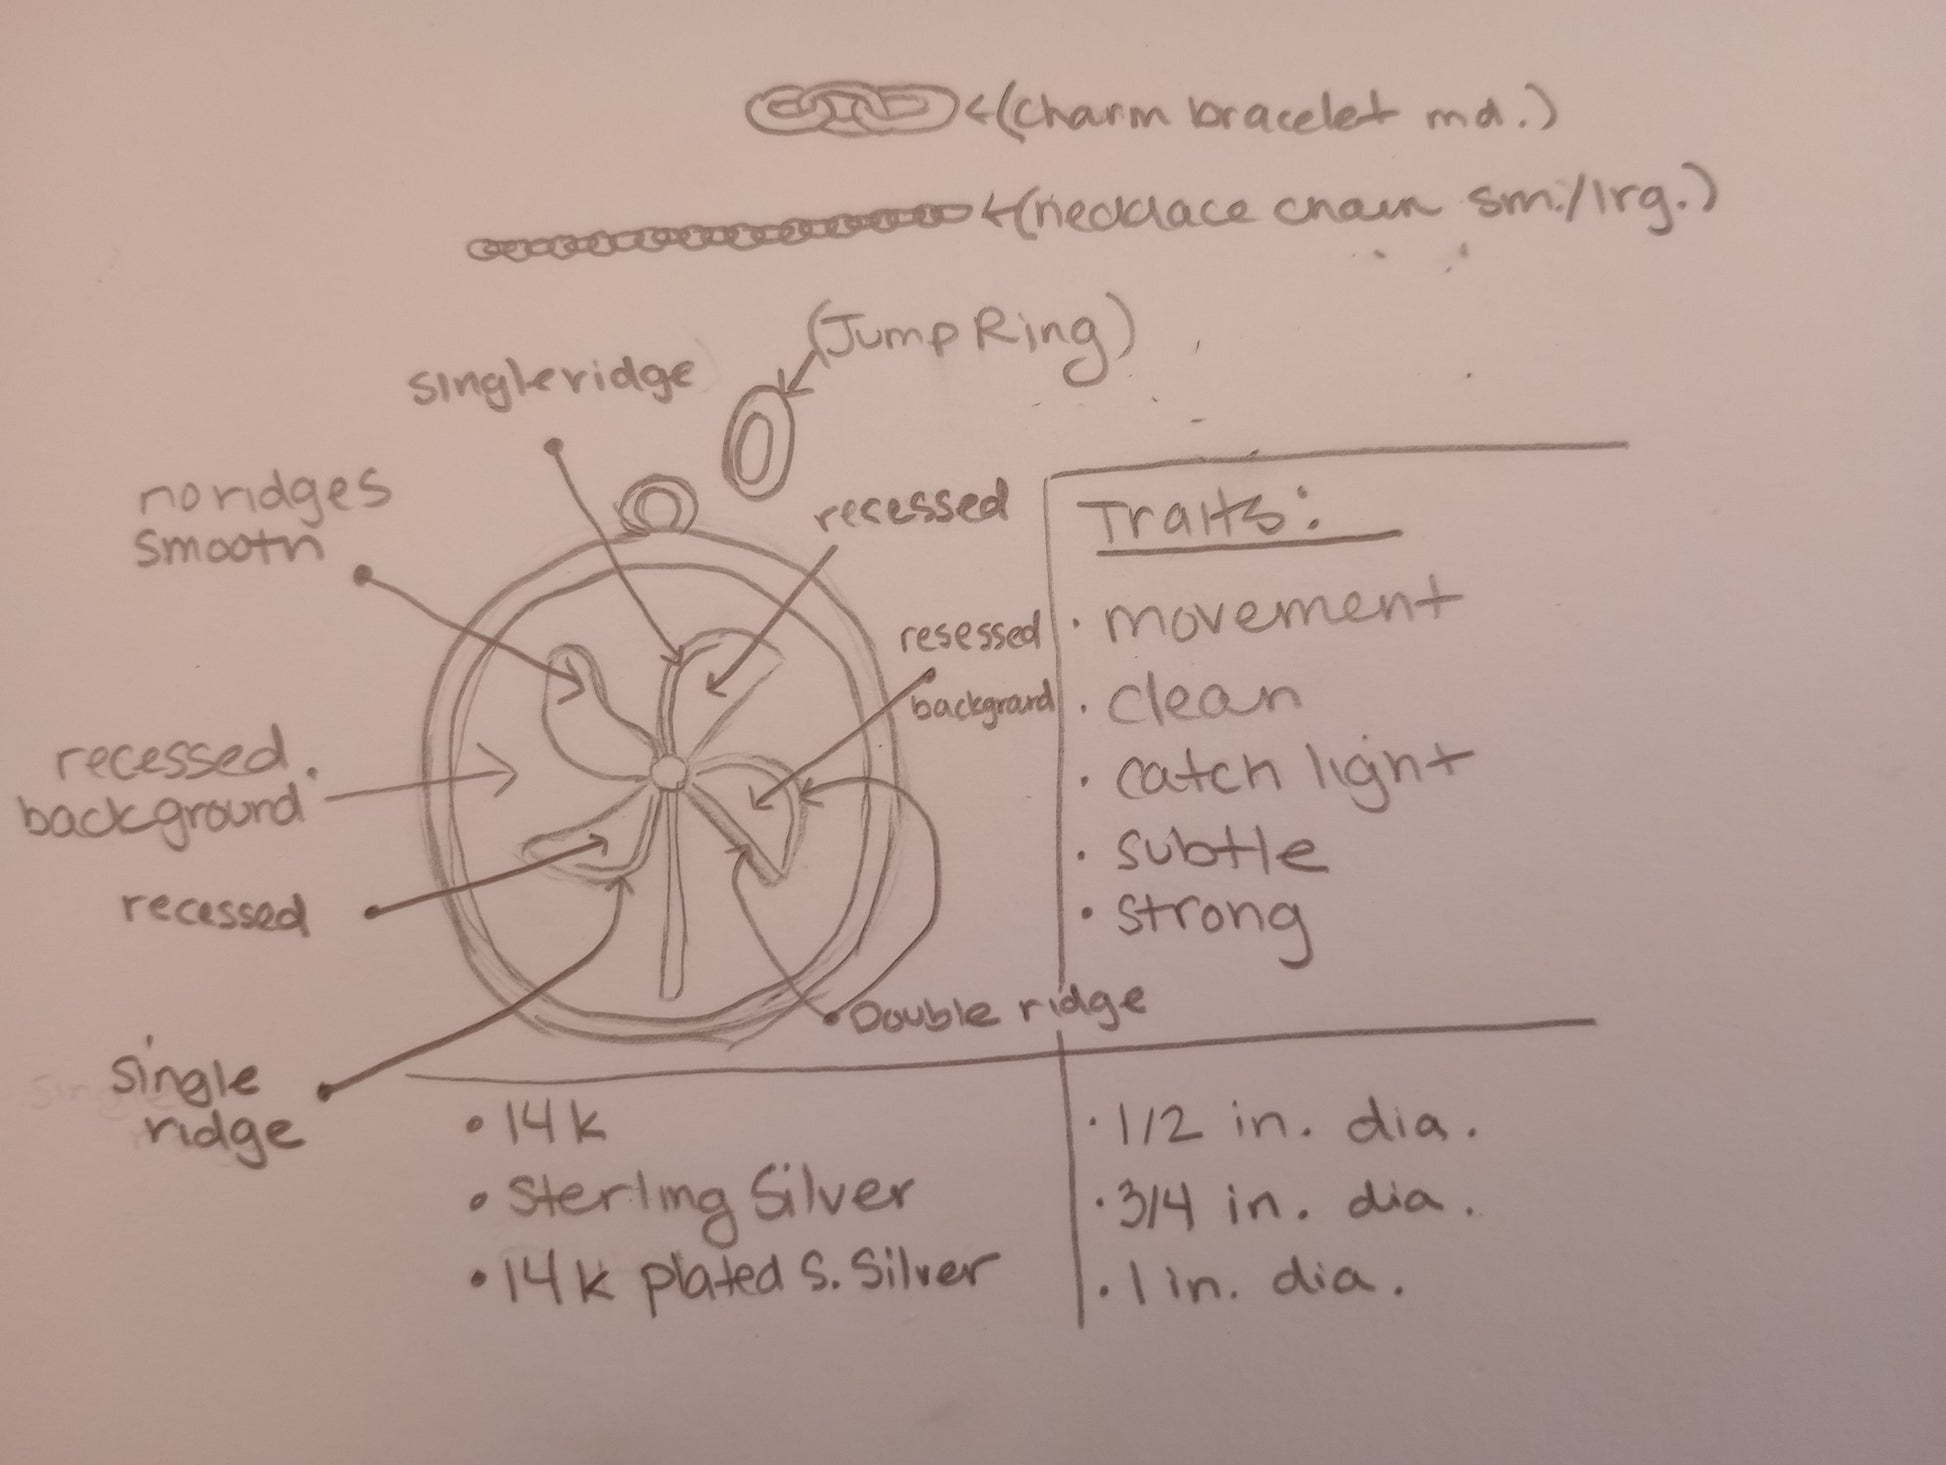 (charm bracelet md.)
(necklace chain sm./lrg.)
(Jump Ring)
single ridge
no ridges
smooth
recessed
resessed
backgrard
recessed.
background
recessed
Double ridge
single
ridge
Traits:
· movement
· clean
· catch light
· subtle
· strong
• 14k
• Sterling Silver
• 14k plated S. Silver
· 1/2 in. dia.
· 3/4 in. dia.
· 1 in. dia.